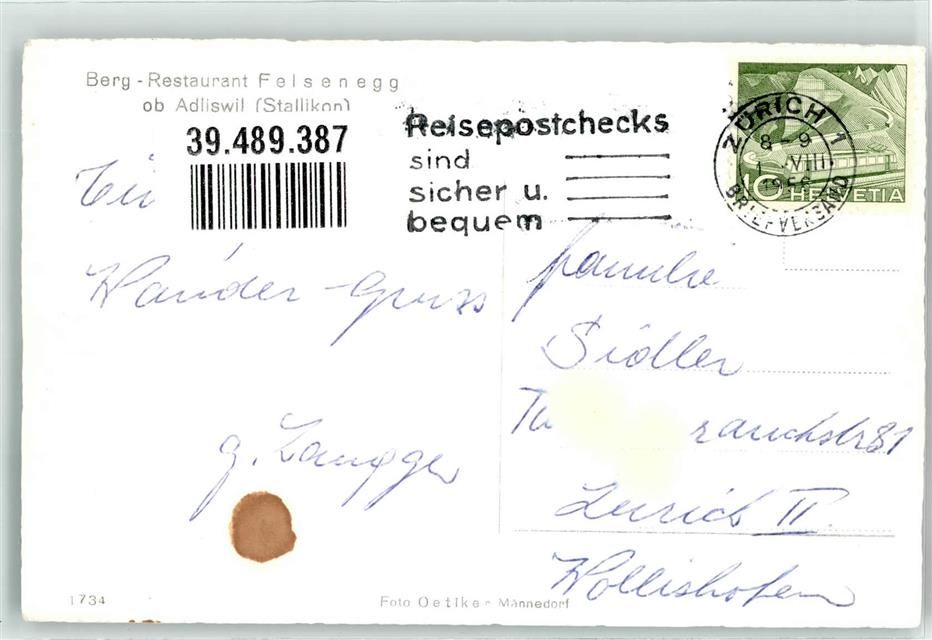 Berg - Restaurant Felsenegg
ob Adliswil (Stallikon)
39.489.387
Reisepostchecks
sind
sicher u.
bequem
ZÜRICH 1
8-9
VIII
1956
BRIEFVERSAND
10 HELVETIA
Ein
Wander-Gruss
g. Langger
Familie
Sidler
rauchstr 81
Zürich II
Wollishofen
1734
Foto Oetiker Männedorf